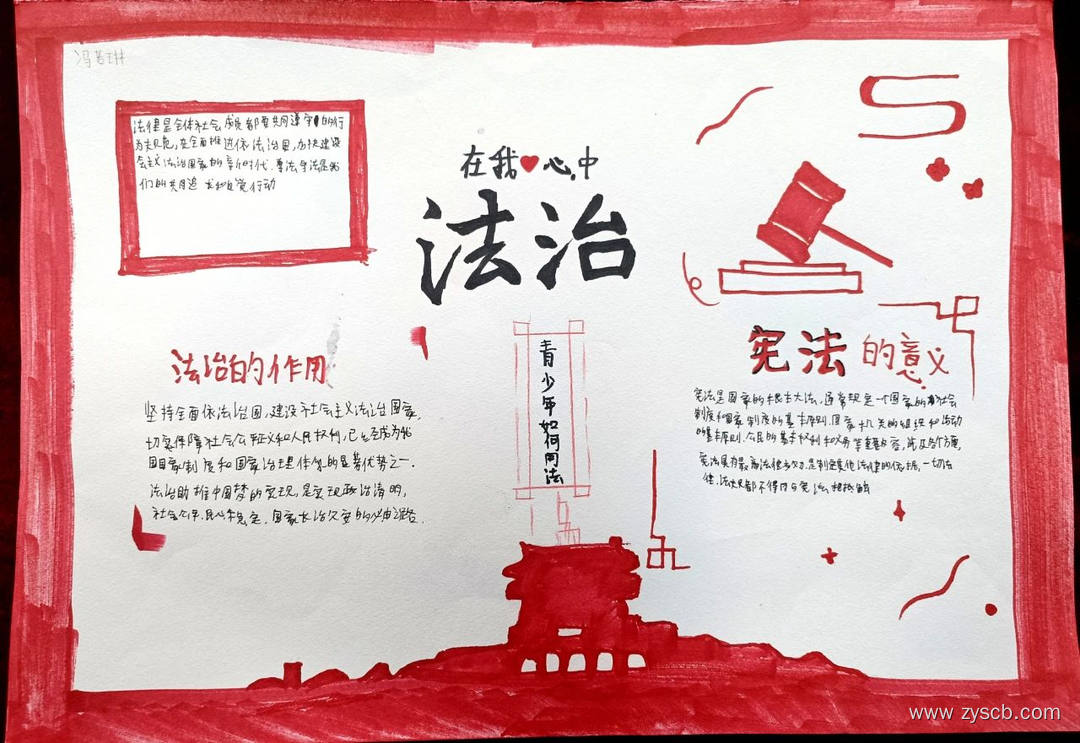 冯
法律是全体社会成员都要共同遵守的行
为规范,在全面推进依法治国,加快建设
会主义法治国家的新时代,尊法守法是我
们的共同追求和自觉行动
在我心中
法治
法治的作用
坚持全面依法治国,建设社会主义法治国家,
切实保障社会公正义和人民权利,已经成为我
国国家制度和国家治理体系的显著优势之一.
法治助推中国梦的实现,是实现政治清明,
社会公平,民心稳定,国家长治久安的必由之路.
青少年如何用法
宪法的意义
宪法是国家的根本大法,通常规定一个国家的社会
制度和国家制度的基本原则.国家机关的组织和活动
的基本原则.公民的基本权利和义务等重要内容,涉及各个方面,
宪法具有最高法律效力.是制定其他法律的依据,一切法
律.法规都不得与宪法相抵触
www.zyscb.com